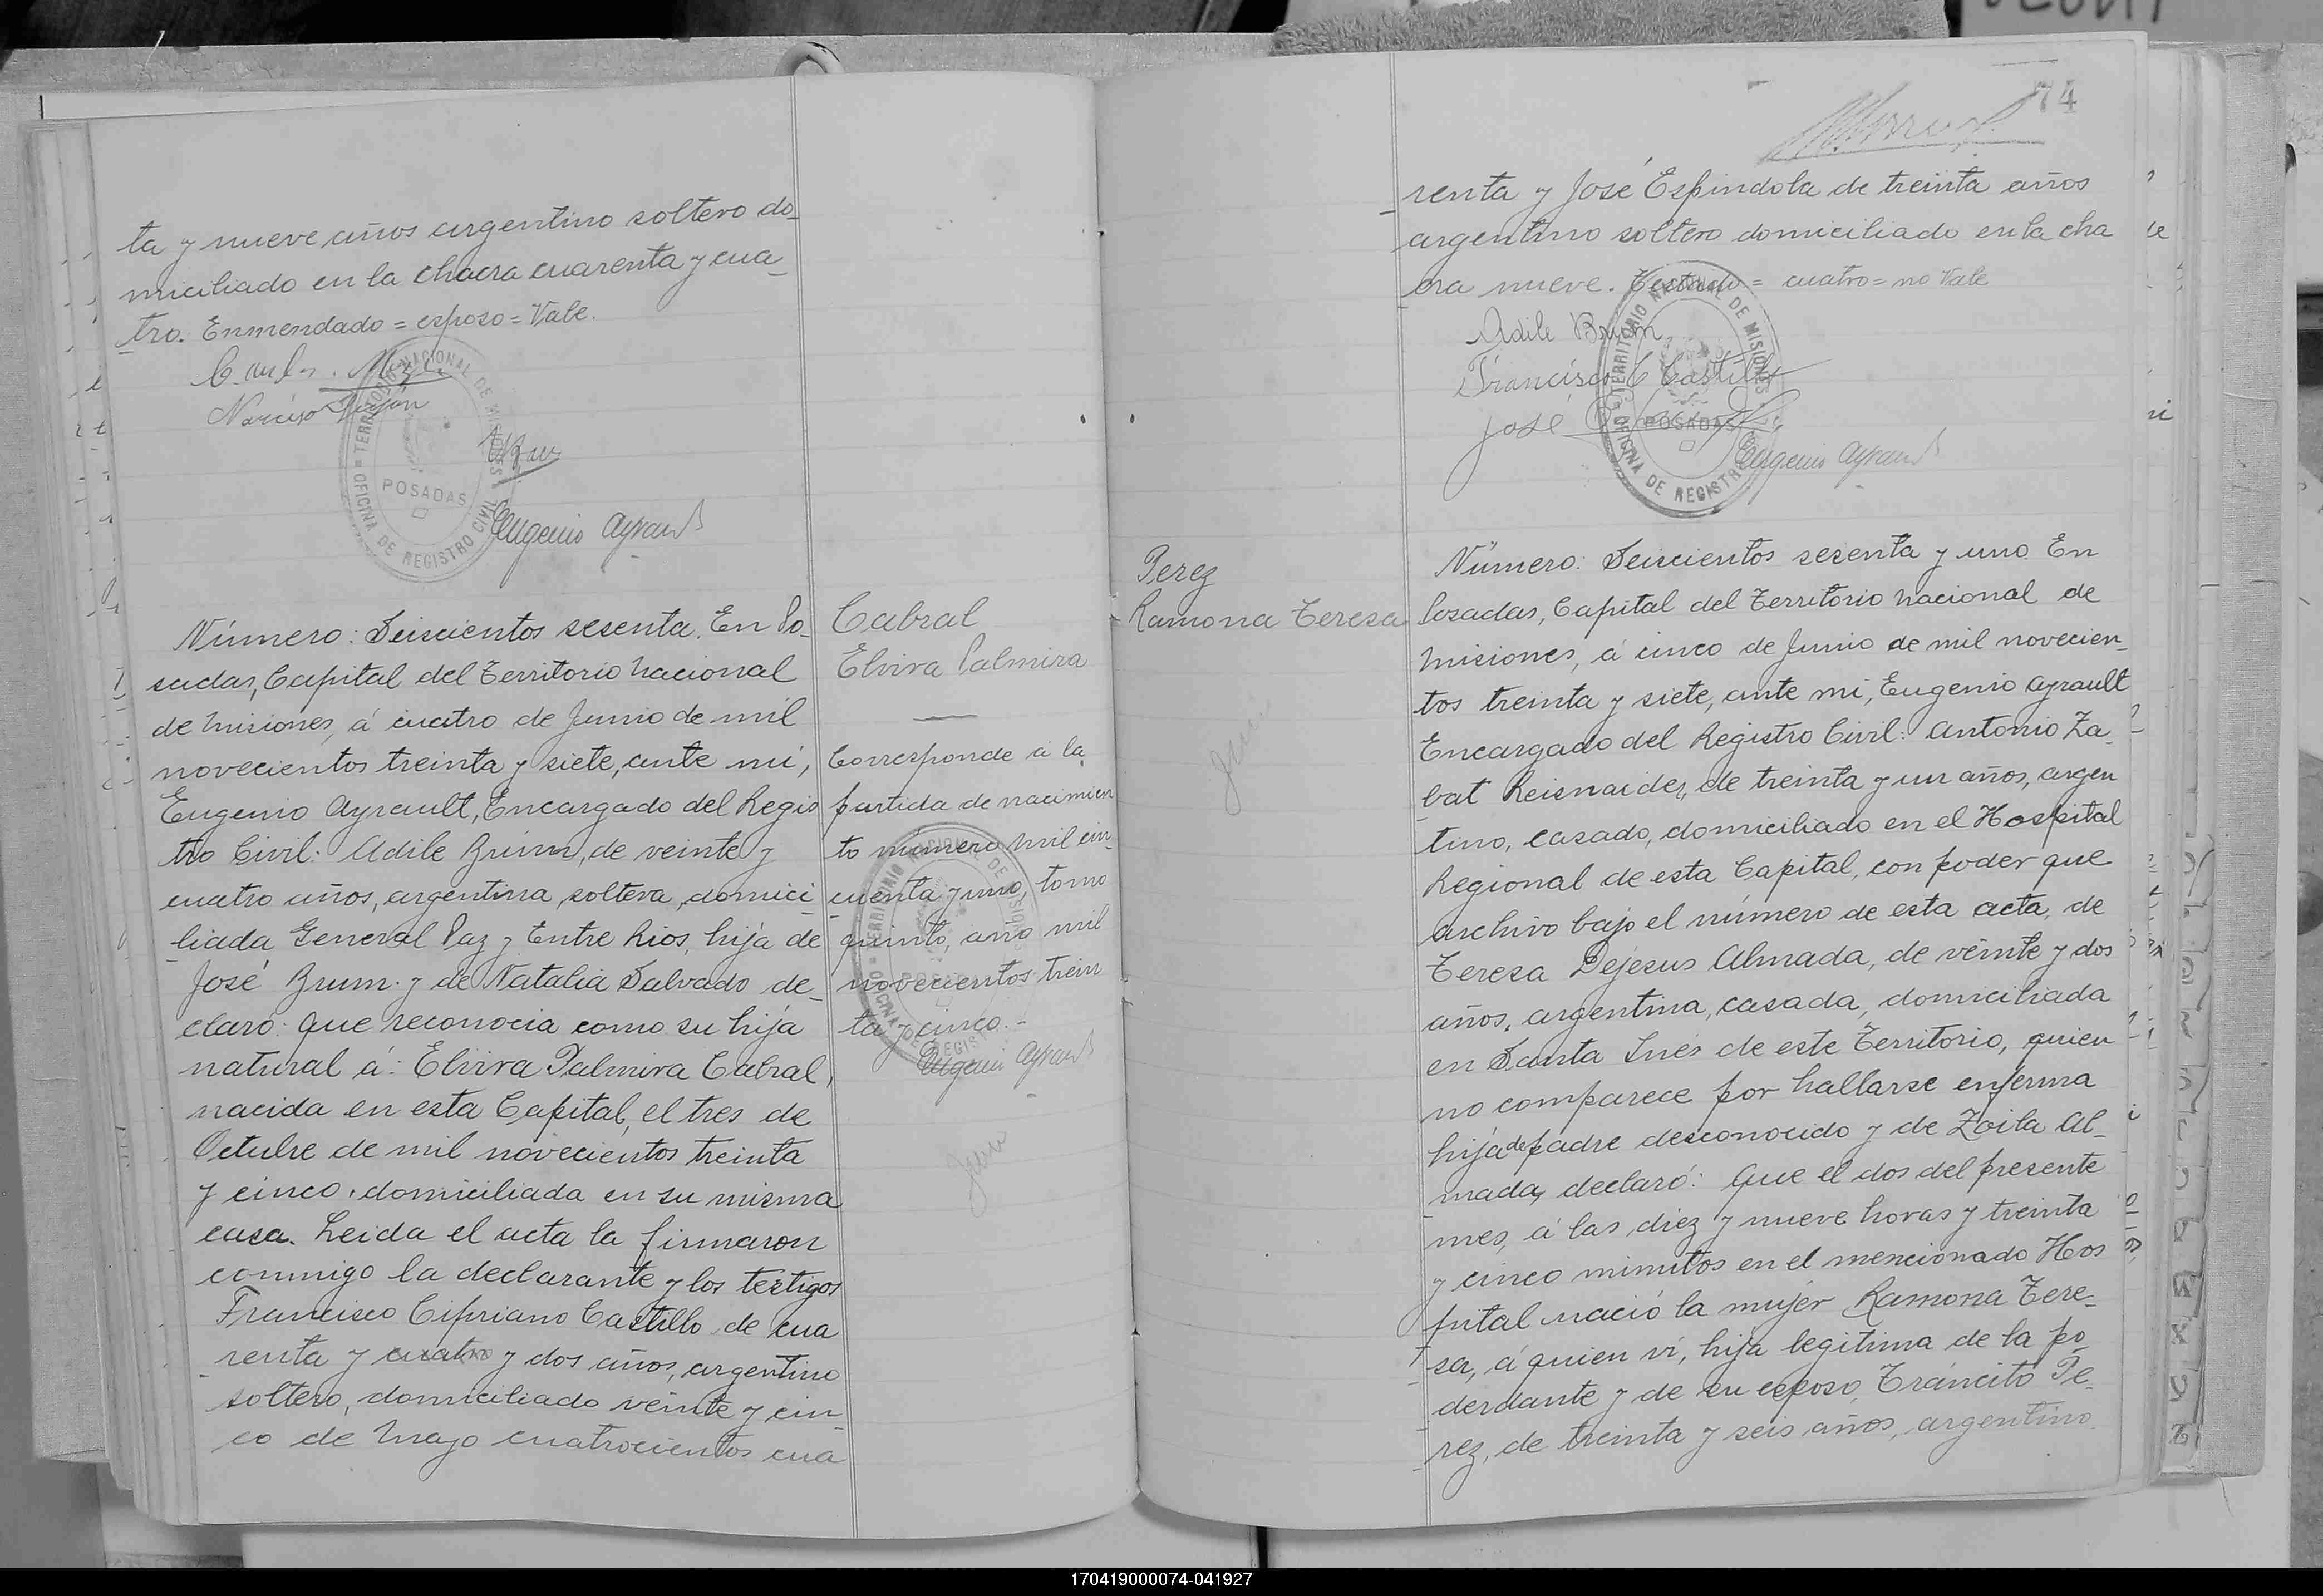 ta y nueve años argentino soltero do_
miciliado en la chacra cuarenta y cua_
tro. Enmendado = esposo = Vale.
Narciso
TERRITORIO NACIONAL DE MISIONES
POSADAS
OFICINA DE REGISTRO CIVIL
Eugenio Ayrault
Número: Seiscientos sesenta. En Po_
sadas, Capital del Territorio Nacional
de Misiones, á cuatro de Junio de mil
novecientos treinta y siete, ante mi,
Eugenio Ayrault, Encargado del Regis
tro Civil: Adile Brum, de veinte y
cuatro años, argentina, soltera, domici
liada General Paz y Entre Rios, hija de
José Brum y de Natalia Salvado de_
claró: Que reconocia como su hija
natural á: Elvira Palmira Cabral,
nacida en esta Capital, el tres de
Octubre de mil novecientos treinta
y cinco, domiciliada en su misma
casa. Leida el acta la firmaron
conmigo la declarante y los testigos
Francisco Cipriano Castillo de cua
renta y cuatro y dos años, argentino
soltero, domiciliado veinte y cin_
co de Mayo cuatrocientos cua
Cabral
Elvira Palmira
Corresponde á la
partida de nacimien
to número mil cin_
cuenta y uno, tomo
quinto, año mil
novecientos trein
ta y cinco.-
Eugenio Ayrault
74
renta y José Espindola de treinta años
argentino soltero domiciliado en la cha
cra nueve. Testado = cuatro = no Vale
Adile Brum
Francisco C Castillo
José
TERRITORIO NACIONAL DE MISIONES
POSADAS
OFICINA DE REGISTRO
Eugenio Ayrault
Perez
Ramona Teresa
Número: Seiscientos sesenta y uno. En
Posadas, Capital del Territorio Nacional de
Misiones, á cinco de Junio de mil novecien_
tos treinta y siete, ante mi, Eugenio Ayrault
Encargado del Registro Civil: Antonio Za_
bat Reisnaides, de treinta y un años, argen
tino, casado, domiciliado en el Hospital
Regional de esta Capital, con poder que
archivo bajo el número de esta acta, de
Teresa Dejesus Almada, de veinte y dos
años, argentina, casada, domiciliada
en Santa Inés de este Territorio, quien
no comparece por hallarse enferma
hija de padre desconocido y de Zoila Al_
mada, declaró: Que el dos del presente
mes, á las diez y nueve horas y treinta
y cinco minutos en el mencionado Hos
pital nació la mujer Ramona Tere_
sa, á quien vi, hija legitima de la po_
derdante y de su esposo, Tráncito Pe_
rez, de treinta y seis años, argentino
170419000074-041927